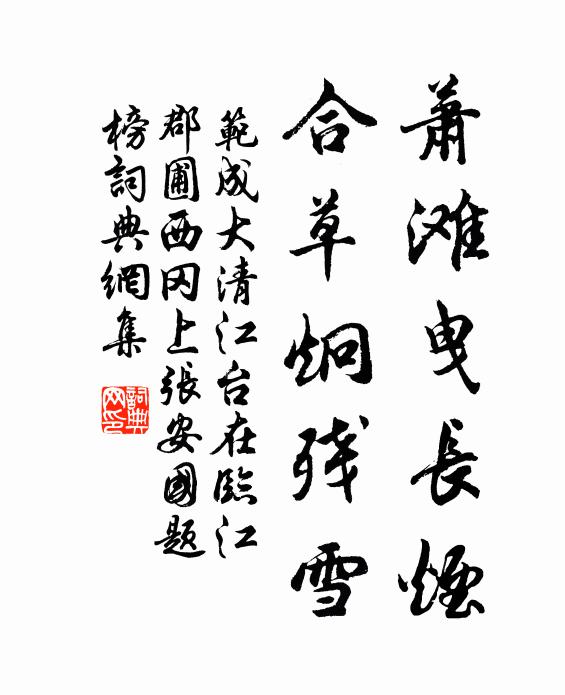 萧滩曳長煙
合草炯残雪
範成大清江台在臨江
郡圃西冈上張安國題
榜詞典網集
詞典网印